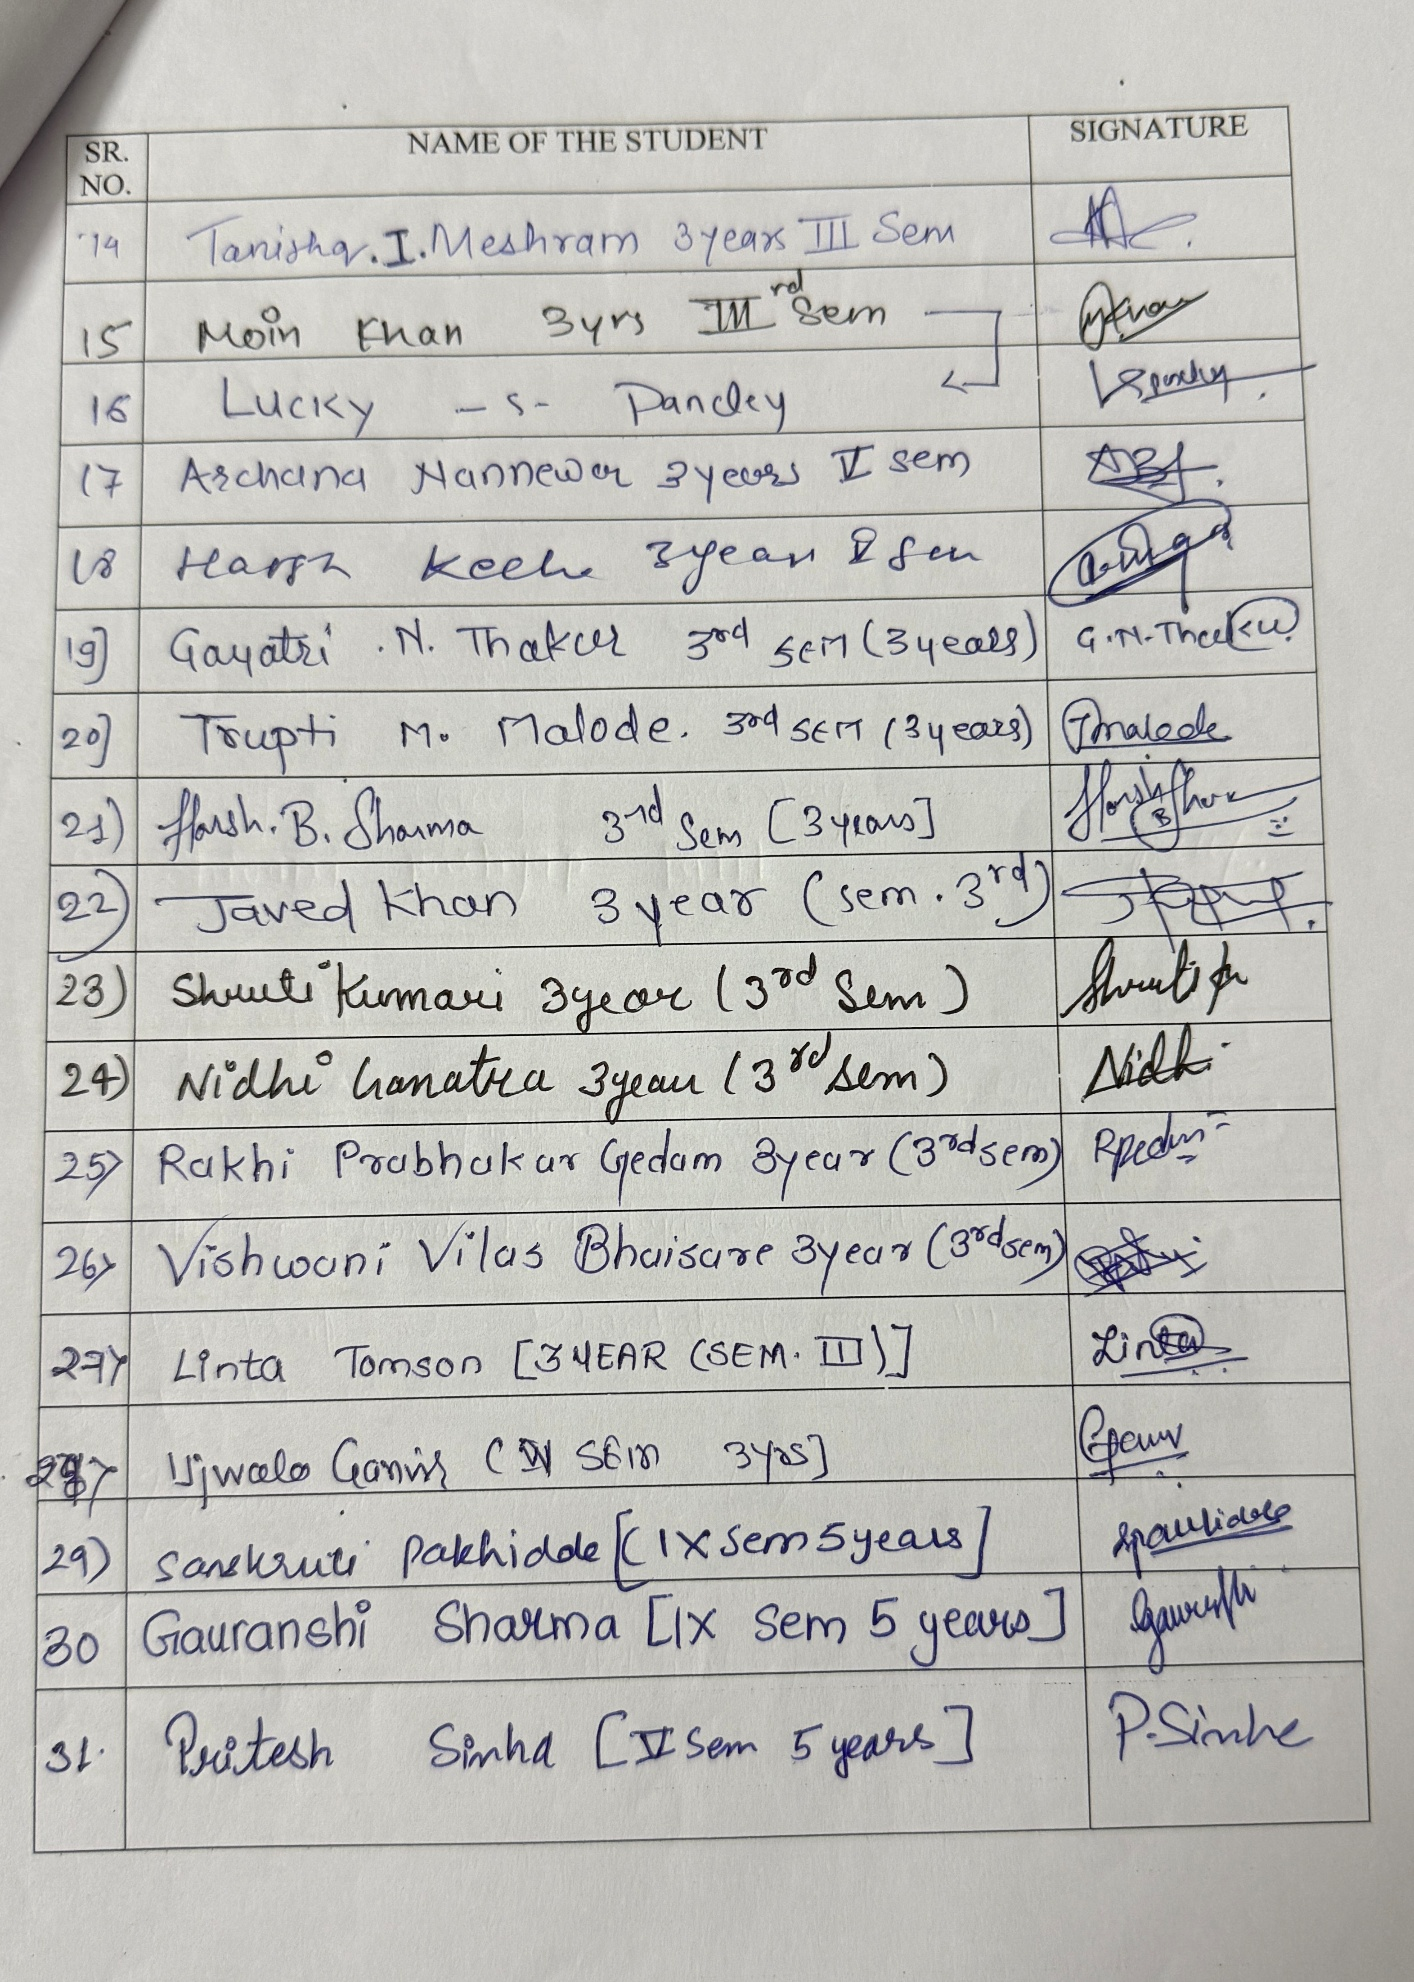 SR. NO. NAME OF THE STUDENT SIGNATURE
14 Tanishq. I. Meshram 3 years III Sem
15 Moin Khan 3 yrs III rd Sem
16 Lucky - s - Pandey
17 Archana Nannewar 3 years V sem
18 Harsh 3 year V sem
19] Gayatri . N. Thakur 3rd SEM (3 years) G.N.Thakur
20] Trupti M. Malode. 3rd SEM (3 years) Tmalode
21) Harsh. B. Sharma 3rd Sem [3 years] Harsh B
22) Javed Khan 3 year (sem. 3rd)
23) Shruti Kumari 3 year (3rd Sem) Shruti
24) Nidhi Ganatra 3 year (3rd sem) Nidhi
25) Rakhi Prabhakar Gedam 3 year (3rd sem)
26) Vishwani Vilas Bhaisare 3 year (3rd sem)
27) Linta Tomson [3 YEAR (SEM. III)] Linta
28) Ujwala Ganvir ( SEM 3 yrs]
29) Sanskruti Pakhidde [( IX Sem 5 years]
30 Gauranshi Sharma [IX Sem 5 years]
31. Pritesh Sinha [V Sem 5 years] P. Sinha